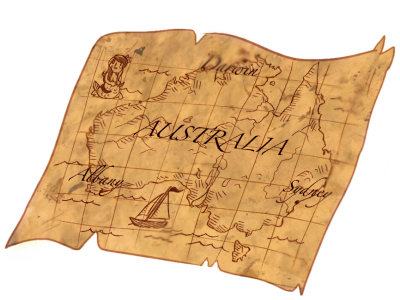 Darwin
AUSTRALIA
Albany
Sydney